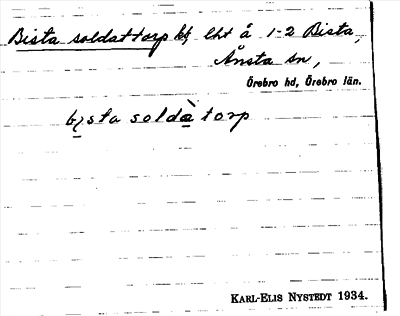 Bista soldattorp kb, lht å 1-2 Bista,
Ånsta sn,
Örebro hd, Örebro län.
bysta soldàtorp
KARL-ELIS NYSTEDT 1934.